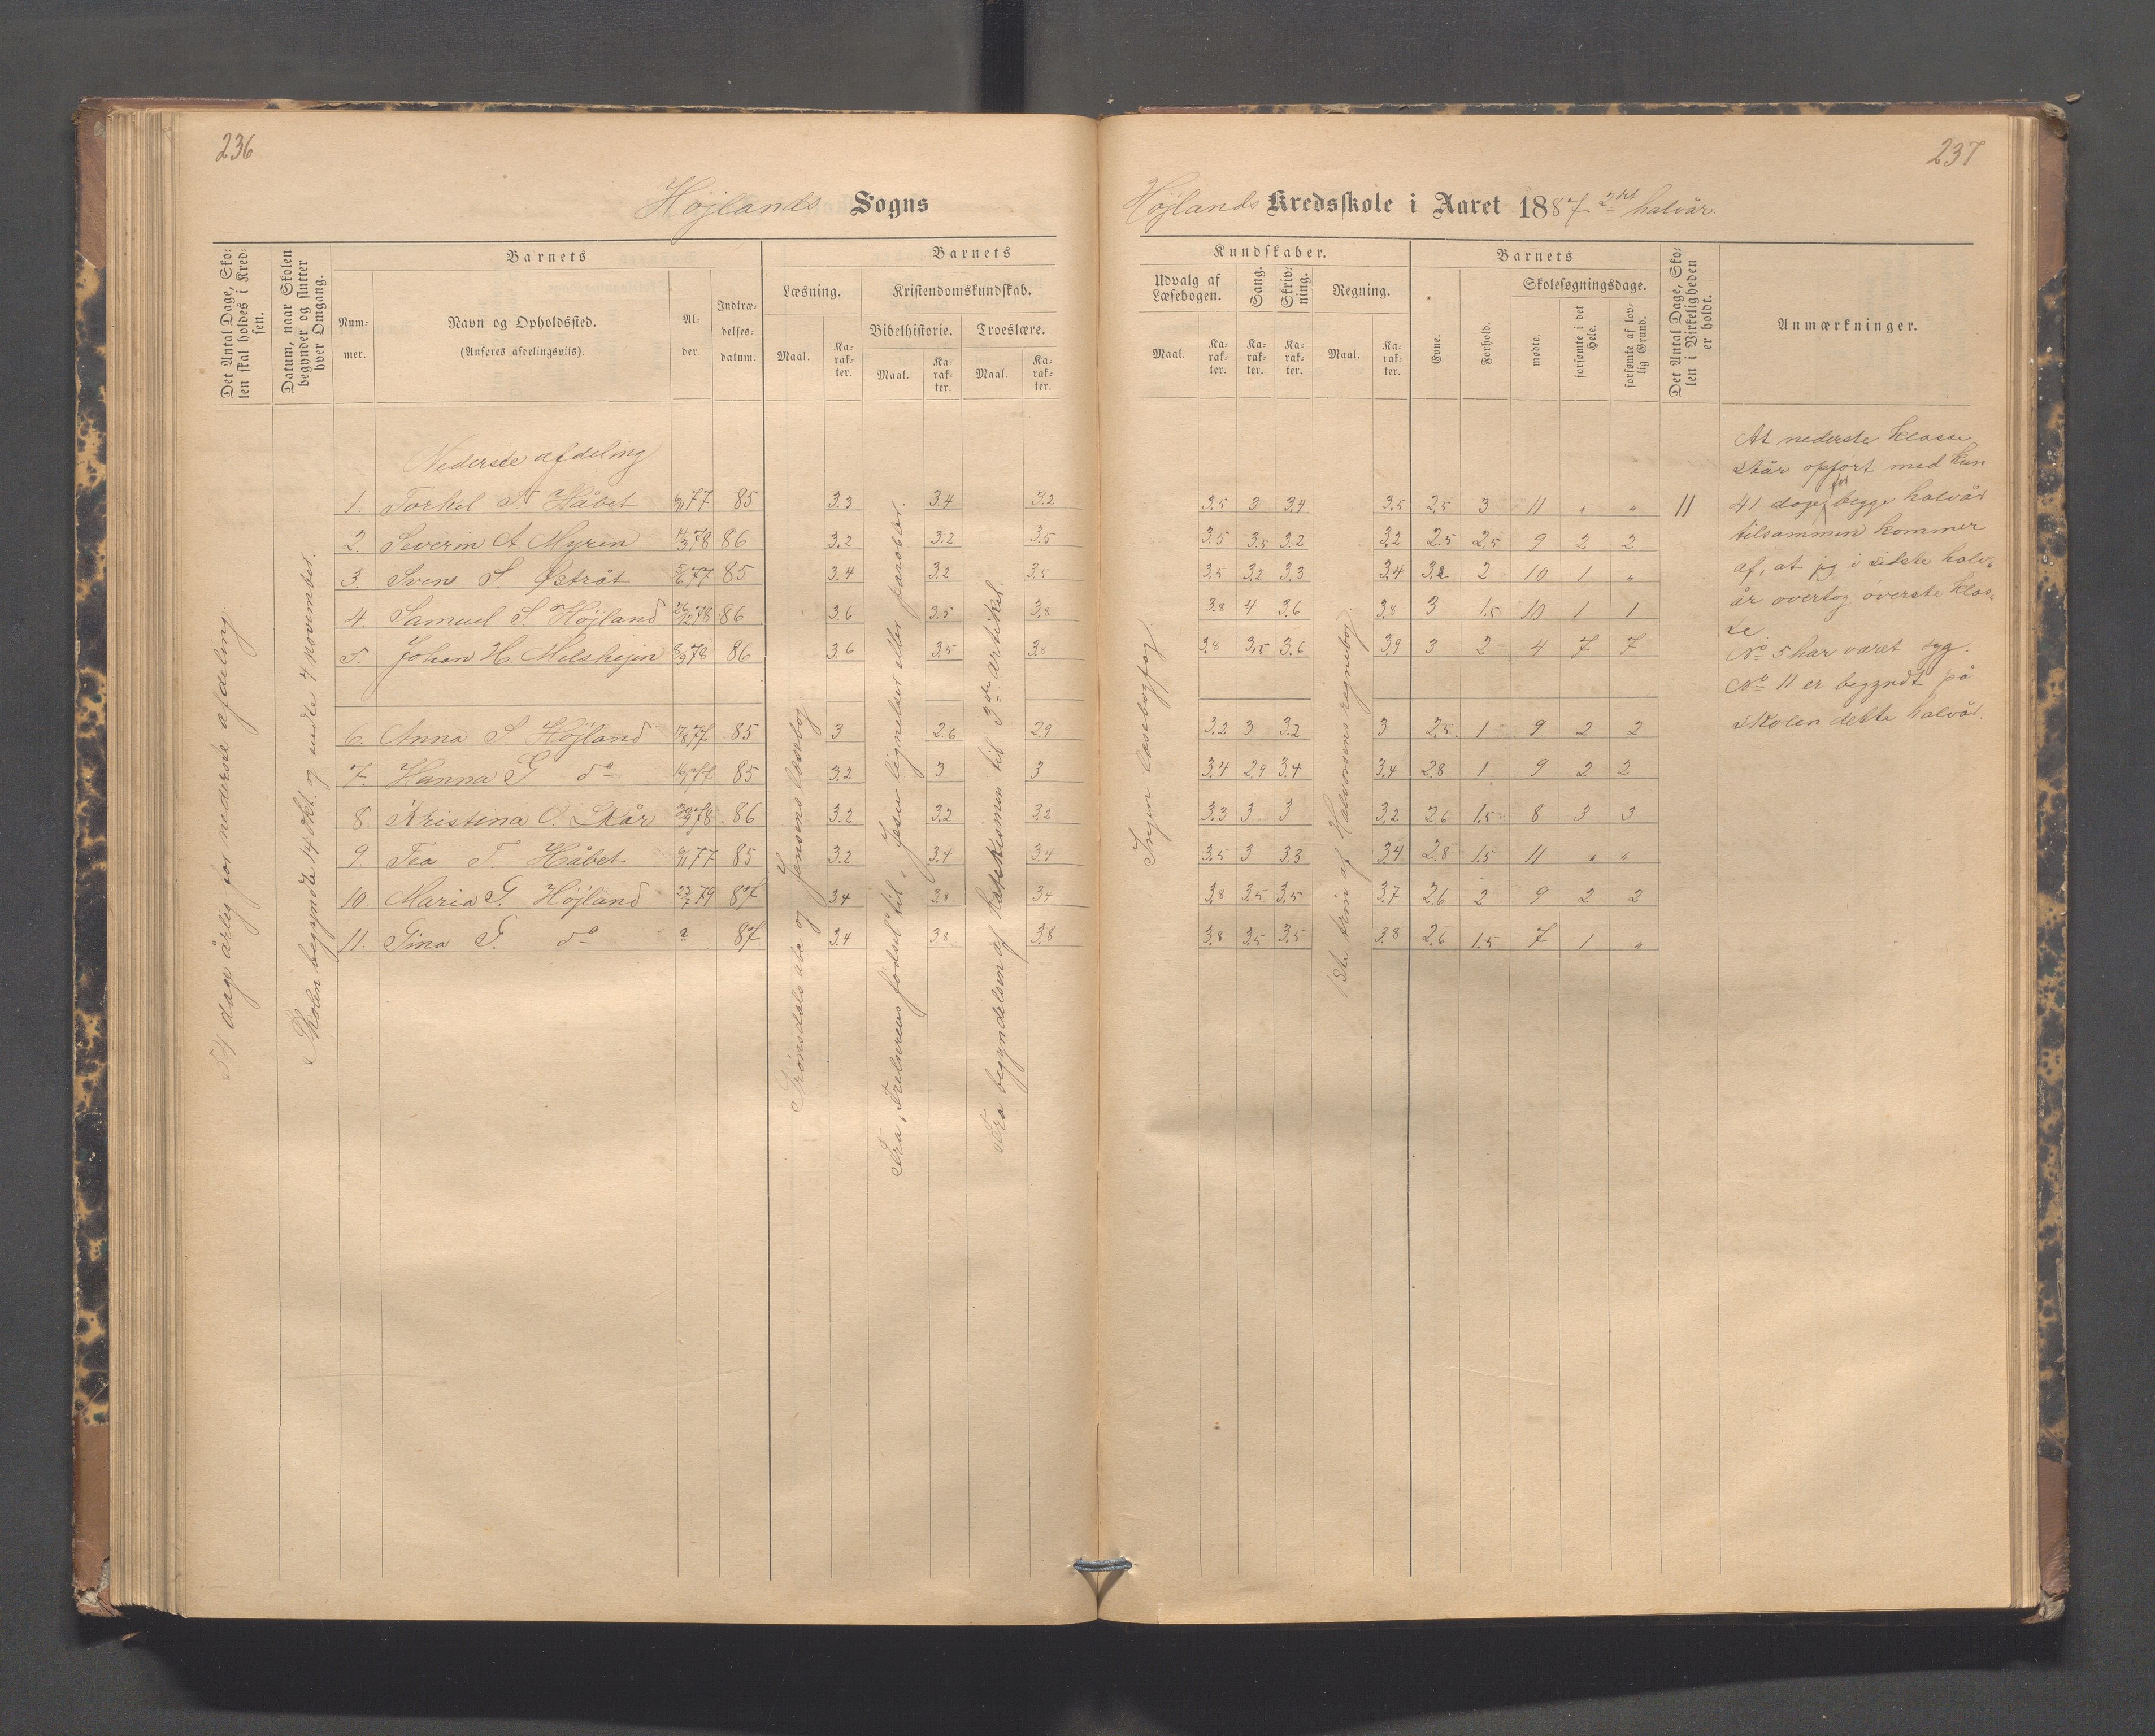 236
Højlands Sogns
Det Antal Dage, Sko-
len skal holdes i Kred-
sen.
Datum, naar Skolen
begynder og slutter
hver Omgang.
Barnets
Num-
mer.
Navn og Opholdssted.
(Anføres afdelingsviis).
Al-
der.
Indtræ-
delses-
datum.
Barnets
Læsning.
Maal.
Ka-
rak-
ter.
Kristendomskundskab.
Bibelhistorie.
Maal.
Ka-
rak-
ter.
Troeslære.
Maal.
Ka-
rak-
ter.
54 dage årlig for nederste afdeling.
Skolen begyndte 14 okt. og endte 7 november.
Nederste afdeling
1. Torkel T. Håbet 6/11 77 85 3.3 3.4 3.2
2. Severin A. Myren 14/3 78 86 3.2 3.2 3.5
3. Sven S. Østråt 5/6 77 85 3.4 3.2 3.5
4. Samuel S. Højland 26/12 78 86 3.6 3.5 3.8
5. Johan H. Melshejen 8/9 78 86 3.6 3.5 3.8
6. Anna S. Højland 17/8 77 85 3 2.6 2.9
7. Hanna G. do 77 85 3.2 3 3
8. Kristina O. Skår 30/9 78 86 3.2 3.2 3.2
9. Tea T. Håbet 6/11 77 85 3.2 3.4 3.4
10. Maria G. Højland 23/7 79 87 3.4 3.8 3.4
11. Tina T. do ? 87 3.4 3.8 3.8
Jensens læsebog
Fra „Frelserens fødsel“ til „Jesu lignelser eller parabler.
Fra begyndelsen af katekismen til 3die artikel.
237
Højlands Kredsskole i Aaret 1887 2det halvår.
Kundskaber.
Udvalg af
Læsebogen.
Maal.
Ka-
rak-
ter.
Sang.
Ka-
rak-
ter.
Skriv-
ning.
Ka-
rak-
ter.
Regning.
Maal.
Ka-
rak-
ter.
Barnets
Evne.
Forhold.
Skolesøgningsdage.
mødte.
forsømte i det
Hele.
forsømte af lov-
lig Grund.
Det Antal Dage, Sko-
len i Virkeligheden
er holdt.
Anmærkninger.
Ingen læsebogfag.
1ste trin af Halvorsens regnebog.
3.5 3 3.4 3.5 2.5 3 11 „ „ 11
3.5 3.5 3.2 3.2 2.5 2.5 9 2 2
3.5 3.2 3.3 3.4 3.2 2 10 1 „
3.8 4 3.6 3.8 3 1.5 10 1 1
3.8 3.5 3.6 3.9 3 2 4 7 7
3.2 3 3.2 3 2.5 1 9 2 2
3.4 2.9 3.4 3.4 2.8 1 9 2 2
3.3 3 3 3.2 2.6 1.5 8 3 3
3.5 3 3.3 3.4 2.8 1.5 11 „ „
3.8 3.5 3.5 3.7 2.6 2 9 2 2
3.8 3.5 3.5 3.8 2.6 1.5 7 1 „
At nederste klasse
står opført med kun
41 dage for begge halvår
tilsammen kommer
af, at jeg i sidste halv-
år overtog øverste klas-
se
No 5 har været syg.
No 11 er begyndt på
skolen dette halvår.